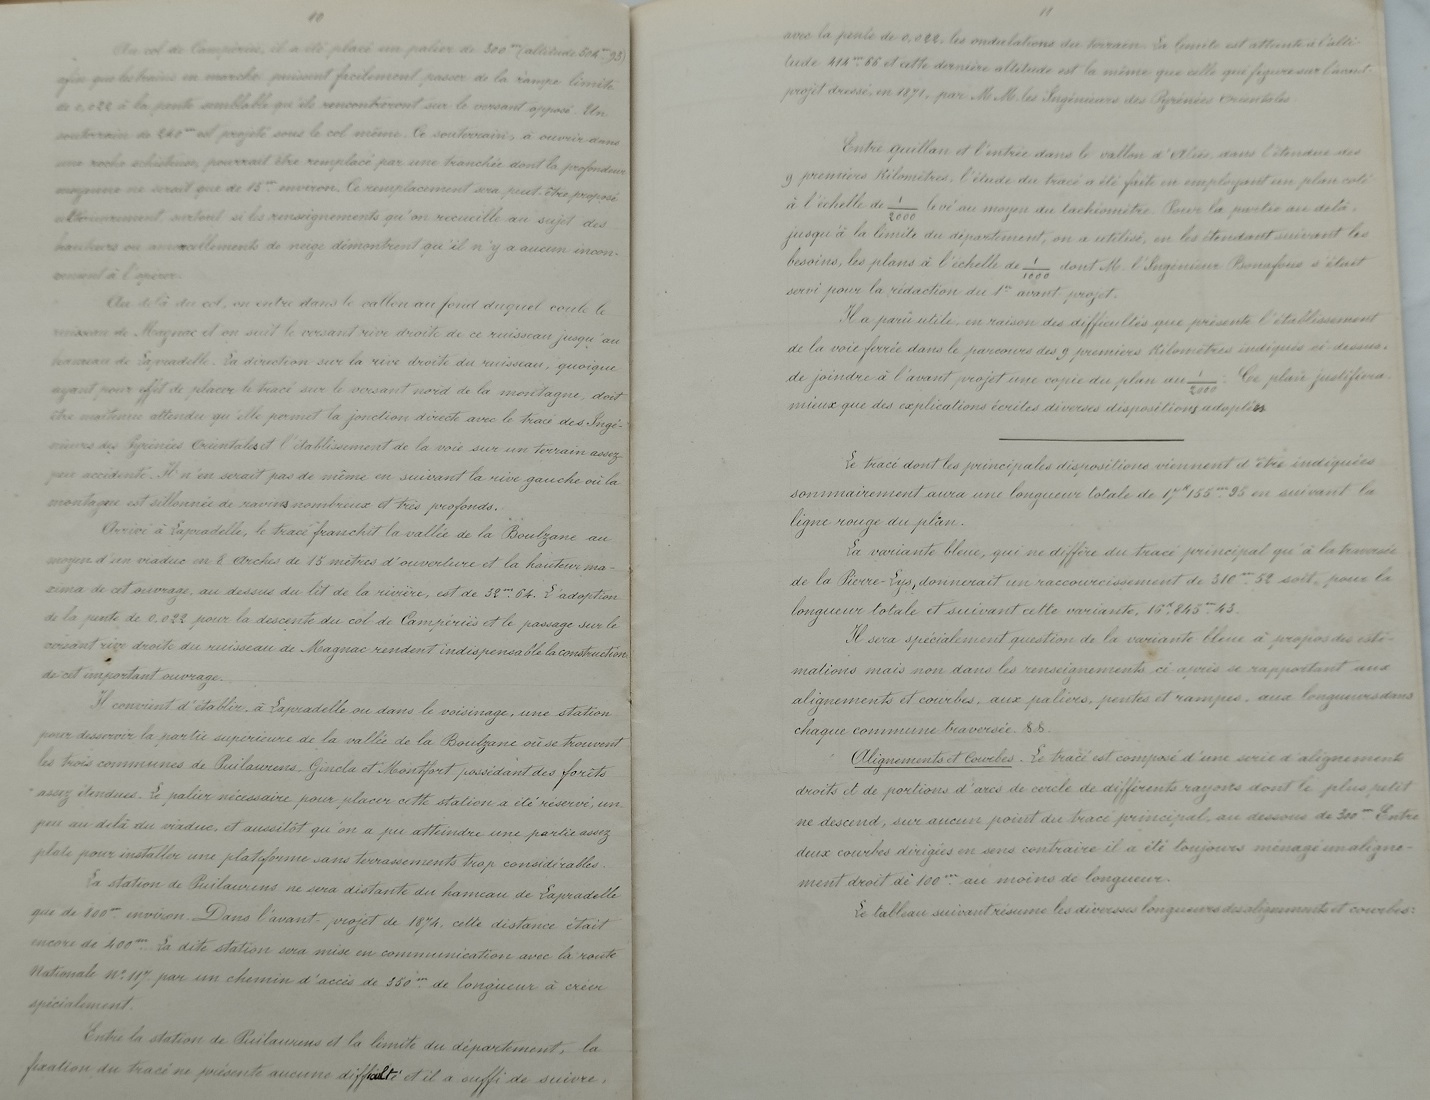 10
Au col de Campérié, il a été placé un palier de 300m (altitude 504m 93)
afin que les trains en marche puissent facilement passer de la rampe limite
de 0,022 à la pente semblable qu'ils rencontreront sur le versant opposé. Un
souterrain de 240m est projeté sous le col même. Ce souterrain, à ouvrir dans
une roche schisteuse, pourrait être remplacé par une tranchée dont la profondeur
moyenne ne serait que de 15m environ. Ce remplacement sera peut être proposé
ultérieurement, surtout si les renseignements qu'on recueille au sujet des
hauteurs ou amoncellements de neige démontrent qu'il n'y a aucun incon-
vénient à l'opérer.
Au delà du col, on entre dans le vallon au fond duquel coule le
ruisseau de Magnac et on suit le versant rive droite de ce ruisseau jusqu'au
hameau de Lapradelle. La direction sur la rive droite du ruisseau, quoique
ayant pour effet de placer le tracé sur le versant nord de la montagne, doit
être maintenue attendu qu'elle permet la jonction directe avec le tracé des Ingé-
nieurs des Pyrénées Orientales et l'établissement de la voie sur un terrain assez
peu accidenté. Il n'en serait pas de même en suivant la rive gauche où la
montagne est sillonnée de ravins nombreux et très profonds.
Arrivé à Lapradelle, le tracé franchit la vallée de la Boulzane au
moyen d'un viaduc en 8 Arches de 15 mètres d'ouverture et la hauteur ma-
xima de cet ouvrage, au dessus du lit de la rivière, est de 32m 64. L'adoption
de la pente de 0,022 pour la descente du col de Campériés et le passage sur le
versant rive droite du ruisseau de Magnac rendent indispensable la construction
de cet important ouvrage.
Il convient d'établir, à Lapradelle ou dans le voisinage, une station
pour desservir la partie supérieure de la vallée de la Boulzane où se trouvent
les trois communes de Puilaurens, Gincla et Montfort possédant des forêts
assez étendues. Le palier nécessaire pour placer cette station a été réservé, un
peu au delà du viaduc, et aussitôt qu'on a pu atteindre une partie assez
plate pour installer une plateforme sans terrassements trop considérables.
La station de Puilaurens ne sera distante du hameau de Lapradelle
que de 100m environ. Dans l'avant-projet de 1874, cette distance était
encore de 400m. La dite station sera mise en communication avec la route
Nationale No 117 par un chemin d'accès de 350m de longueur à créer
spécialement.
Entre la station de Puilaurens et la limite du département, la
fixation du tracé ne présente aucune difficulté et il a suffi de suivre,
11
avec la pente de 0,022, les ondulations du terrain. La limite est atteinte à l'alti-
tude 414m 86 et cette dernière altitude est la même que celle qui figure sur l'avant-
projet dressé, en 1871, par M.M. les Ingénieurs des Pyrénées Orientales
Entre Quillan et l'entrée dans le vallon d'Aliès, dans l'étendue des
9 premiers Kilomètres, l'étude du tracé a été faite en employant un plan coté
à l'échelle de 1/2000 levé au moyen du tachéomètre. Pour la partie au delà,
jusqu'à la limite du département, on a utilisé, en les étendant suivant les
besoins, les plans à l'échelle de 1/1000 dont M. l'Ingénieur Bonafous s'était
servi pour la rédaction du 1er avant projet.
Il a paru utile, en raison des difficultés que présente l'établissement
de la voie ferrée dans le parcours des 9 premiers Kilomètres indiqués ci-dessus,
de joindre à l'avant projet une copie du plan au 1/2000. Ce plan justifiera
mieux que des explications écrites diverses dispositions adoptées
Le tracé dont les principales dispositions viennent d'être indiquées
sommairement aura une longueur totale de 17k 155m 95 en suivant la
ligne rouge du plan.
La variante bleue, qui ne diffère du tracé principal qu'à la traversée
de la Pierre-Lys, donnerait un raccourcissement de 310m 52 soit, pour la
longueur totale et suivant cette variante, 16k 845m 43.
Il sera spécialement question de la variante bleue à propos des esti-
mations mais non dans les renseignements ci après se rapportant aux
alignements et courbes, aux paliers, pentes et rampes, aux longueurs dans
chaque commune traversée &&.
Alignements et Courbes. Le tracé est composé d'une série d'alignements
droits et de portions d'arcs de cercle de différents rayons dont le plus petit
ne descend, sur aucun point du tracé principal, au dessous de 300m. Entre
deux courbes dirigées en sens contraire il a été toujours ménagé un aligne-
ment droit de 100m au moins de longueur.
Le tableau suivant résume les diverses longueurs des alignements et courbes: